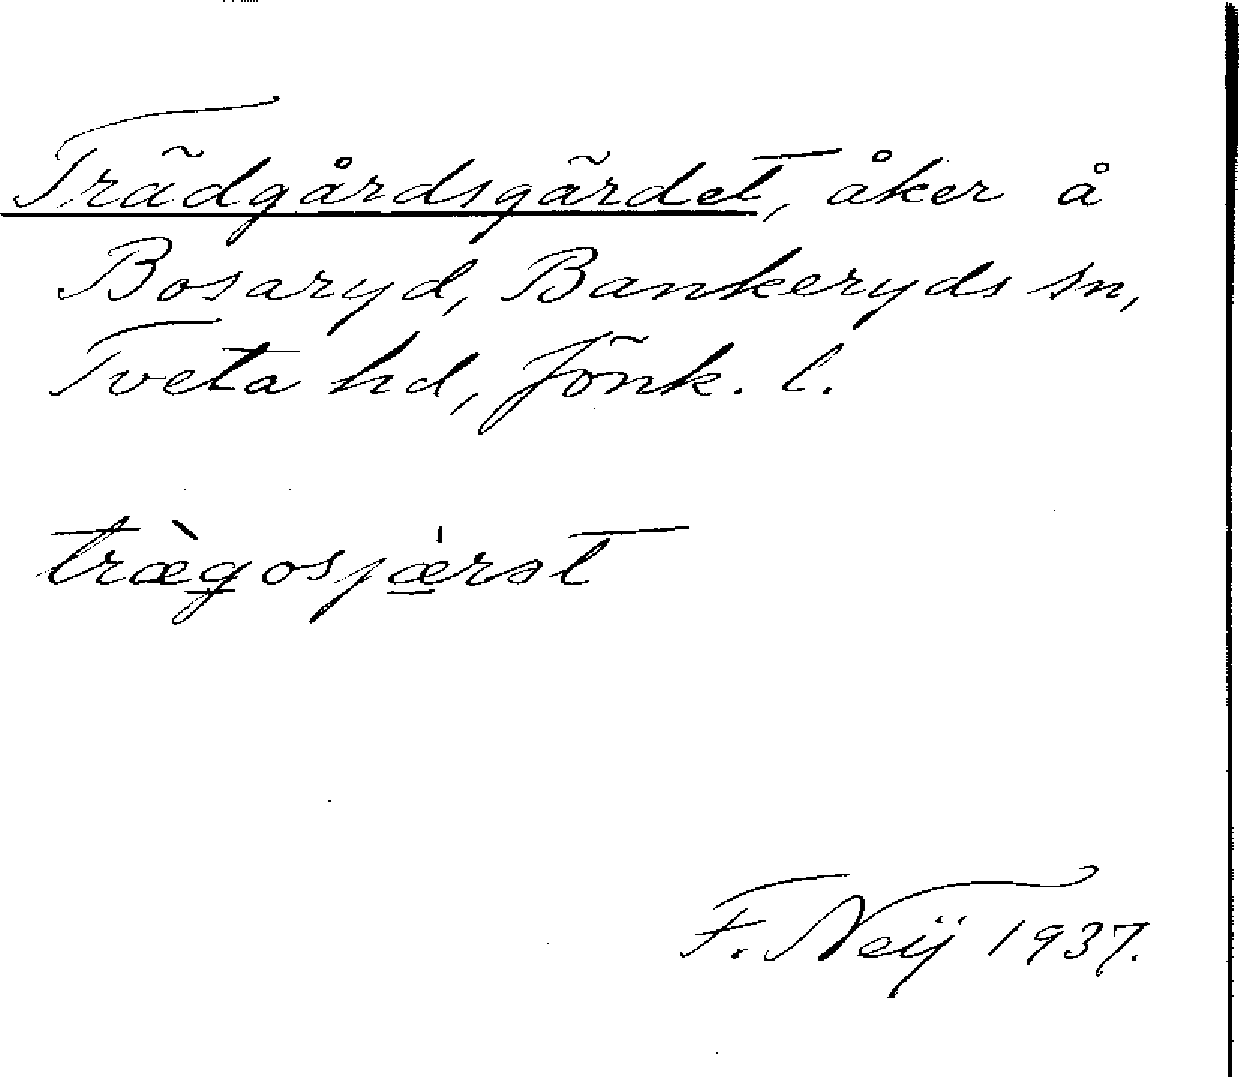 Trädgårdsgärdet, åker å
Bosaryd, Bankeryds sn,
Tveta hd, Jönk. l.
træ̀gosjæ̍rət
F. Neij 1937.